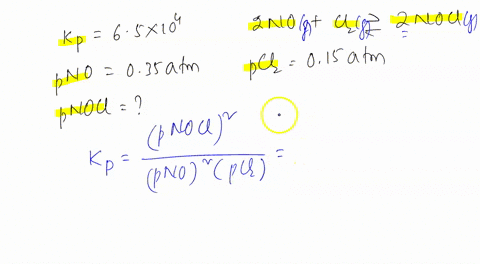 Kp = 6.5×10⁴
2NO(g) + Cl₂(g) ⇌ 2NOCl(g)
pNO = 0.35 atm
pCl₂ = 0.15 atm
pNOCl = ?
Kp = (pNOCl)² / (pNO)² (pCl₂) =